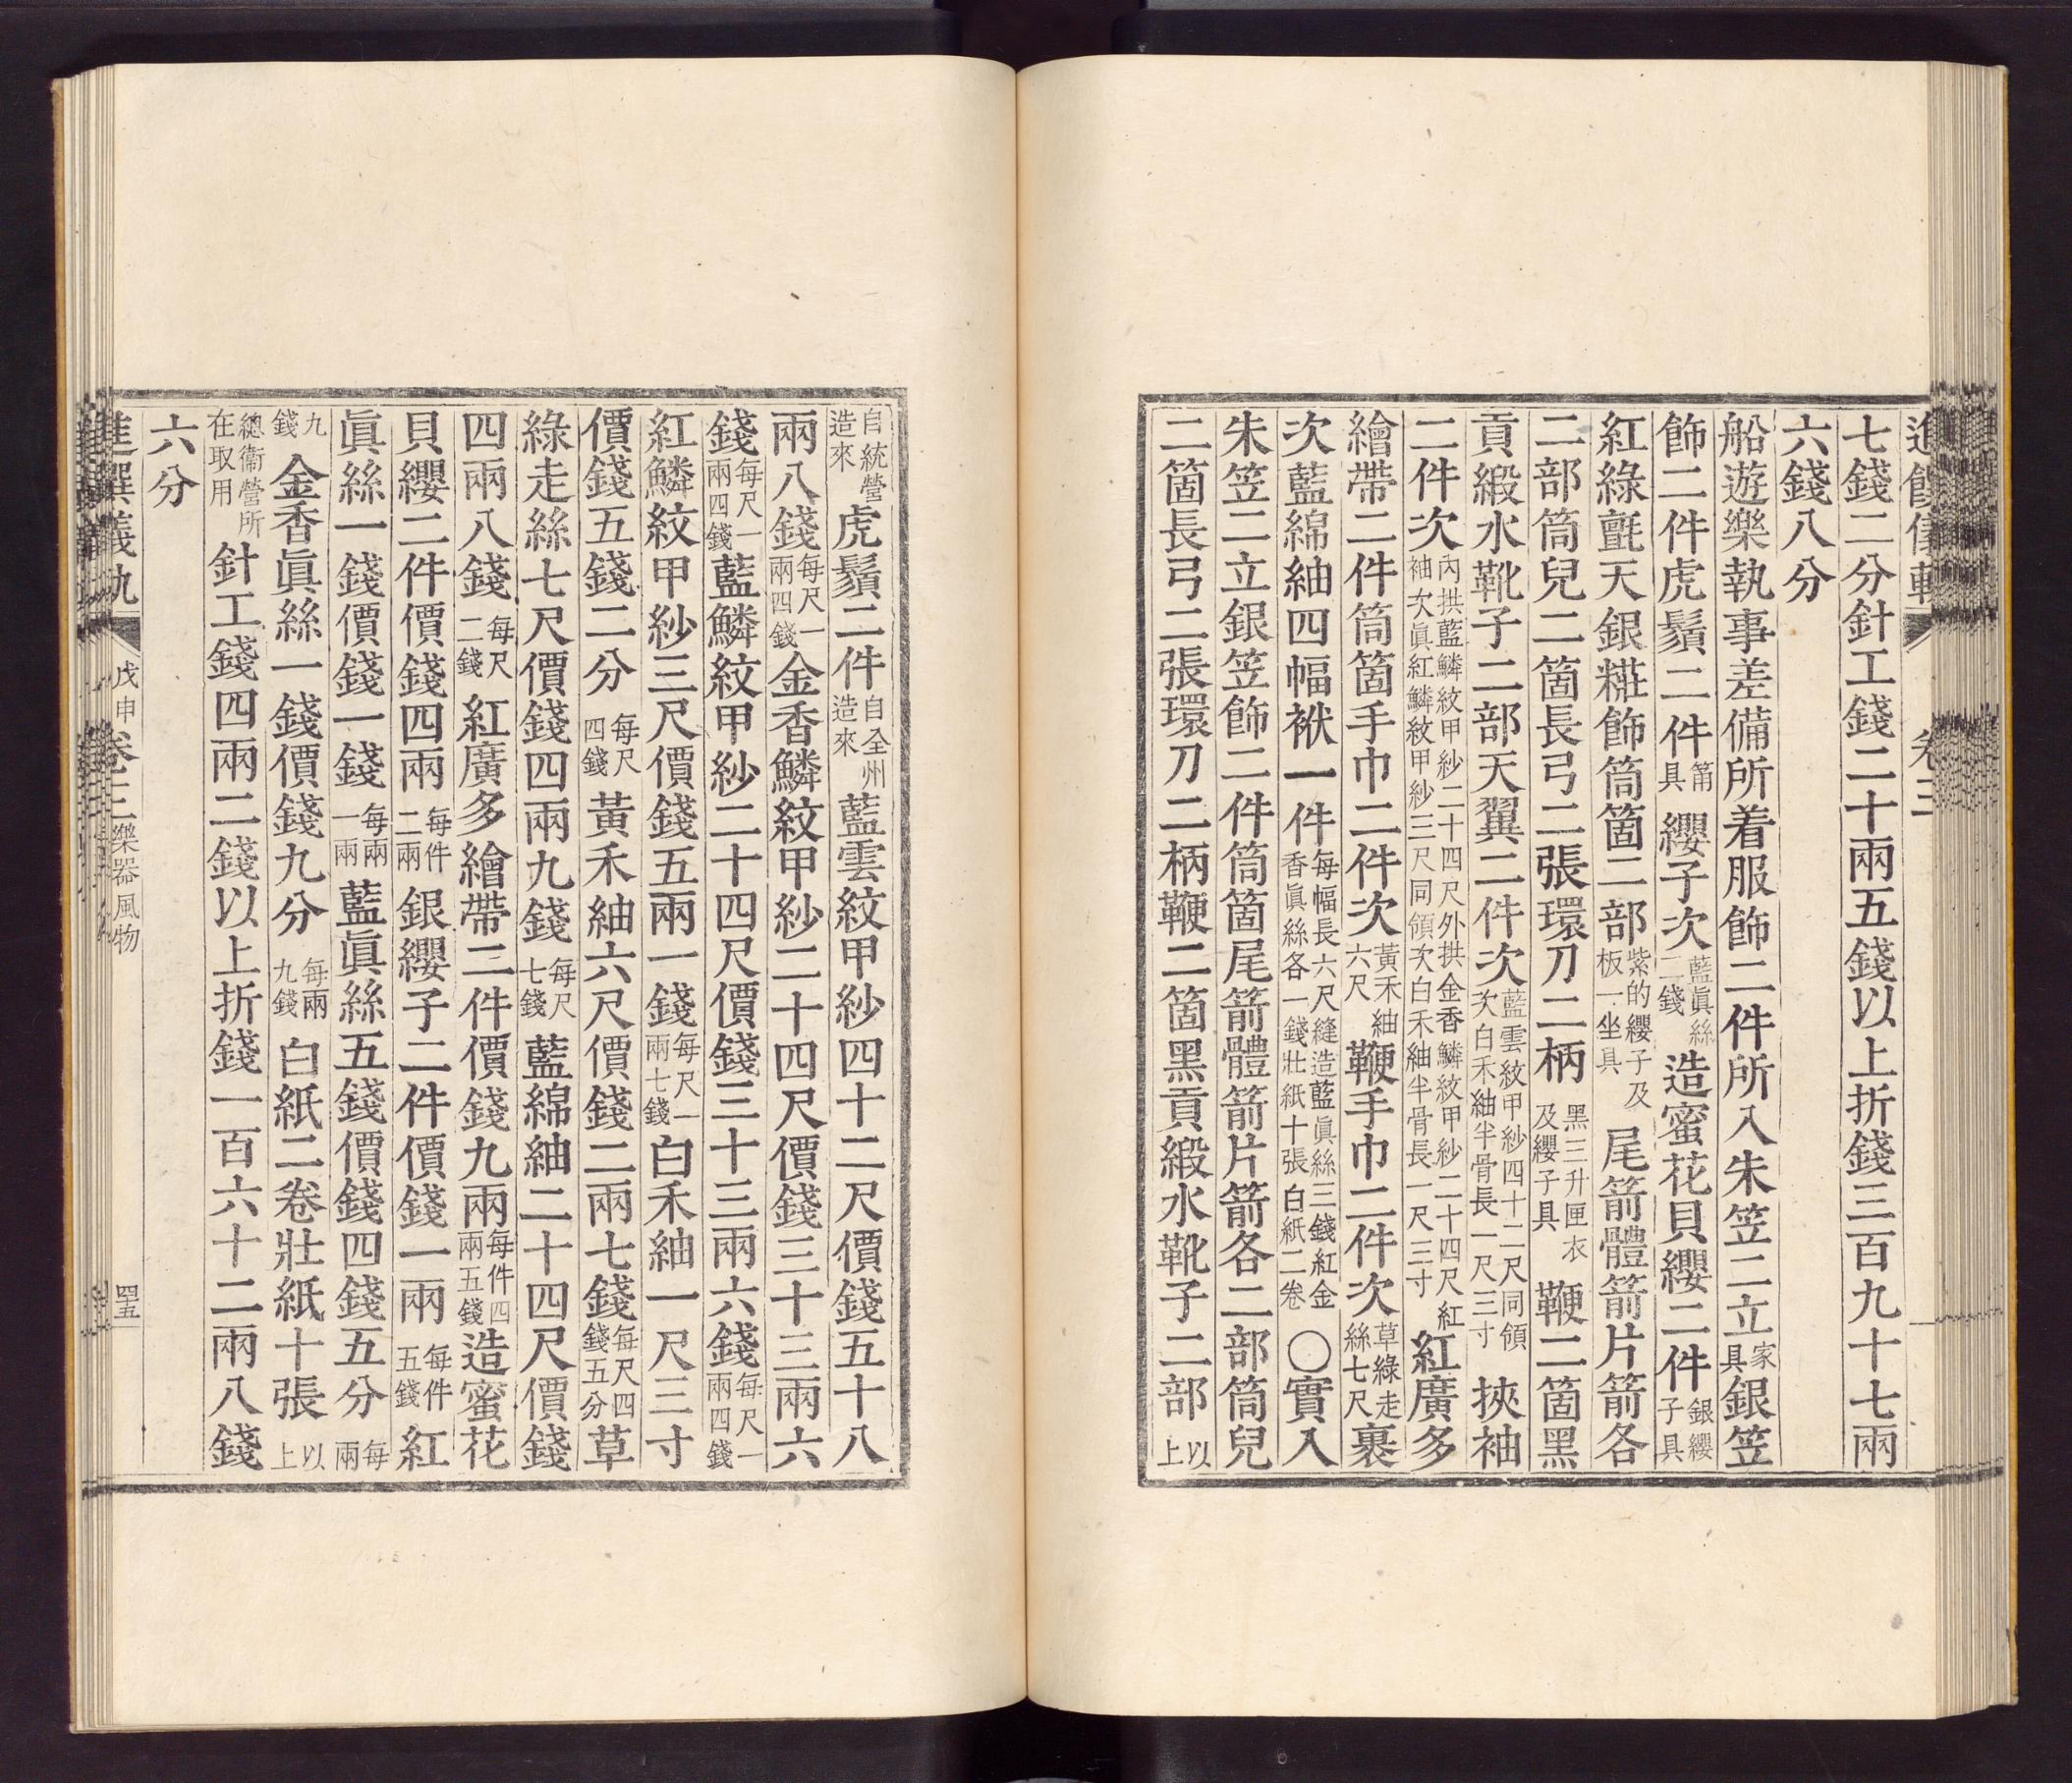 進饌儀軌 卷三
七錢二分針工錢二十兩五錢以上折錢三百九十七兩
六錢八分
船遊樂執事差備所着服飾二件所入朱笠二立家具銀笠
飾二件虎鬚二件箾具纓子次藍眞絲二錢造蜜花貝纓二件銀纓子具
紅綠氈天銀䊋飾筒箇二部紫的纓子及板一坐具尾箭體箭片箭各
二部筒兒二箇長弓二張環刀二柄黑三升匣衣及纓子具鞭二箇黑
貢緞水靴子二部天翼二件次藍雲紋甲紗四十二尺同領次白禾紬半骨長一尺三寸挾袖
二件次內拱藍鱗紋甲紗二十四尺外拱金香鱗紋甲紗二十四尺紅袖次眞紅鱗紋甲紗三尺同領次白禾紬半骨長一尺三寸紅廣多
繪帶二件筒箇手巾二件次黃禾紬六尺鞭手巾二件次草綠走絲七尺裹
次藍綿紬四幅袱一件每幅長六尺縫造藍眞絲三錢紅金香眞絲各一錢壯紙十張白紙二卷○實入
朱笠二立銀笠飾二件筒箇尾箭體箭片箭各二部筒兒
二箇長弓二張環刀二柄鞭二箇黑貢緞水靴子二部以上
自統營造來虎鬚二件自全州造來藍雲紋甲紗四十二尺價錢五十八
兩八錢每尺一兩四錢金香鱗紋甲紗二十四尺價錢三十三兩六
錢每尺一兩四錢藍鱗紋甲紗二十四尺價錢三十三兩六錢每尺一兩四錢
紅鱗紋甲紗三尺價錢五兩一錢每尺一兩七錢白禾紬一尺三寸
價錢五錢二分每尺四錢黃禾紬六尺價錢二兩七錢每尺四錢五分草
綠走絲七尺價錢四兩九錢每尺七錢藍綿紬二十四尺價錢
四兩八錢每尺二錢紅廣多繪帶二件價錢九兩每件四兩五錢造蜜花
貝纓二件價錢四兩每件二兩銀纓子二件價錢一兩每件五錢紅
眞絲一錢價錢一錢每兩一兩藍眞絲五錢價錢四錢五分每兩
九錢金香眞絲一錢價錢九分每兩九錢白紙二卷壯紙十張以上
總衞營所在取用針工錢四兩二錢以上折錢一百六十二兩八錢
六分
進饌儀軌 戊申卷三 樂器風物 四十五